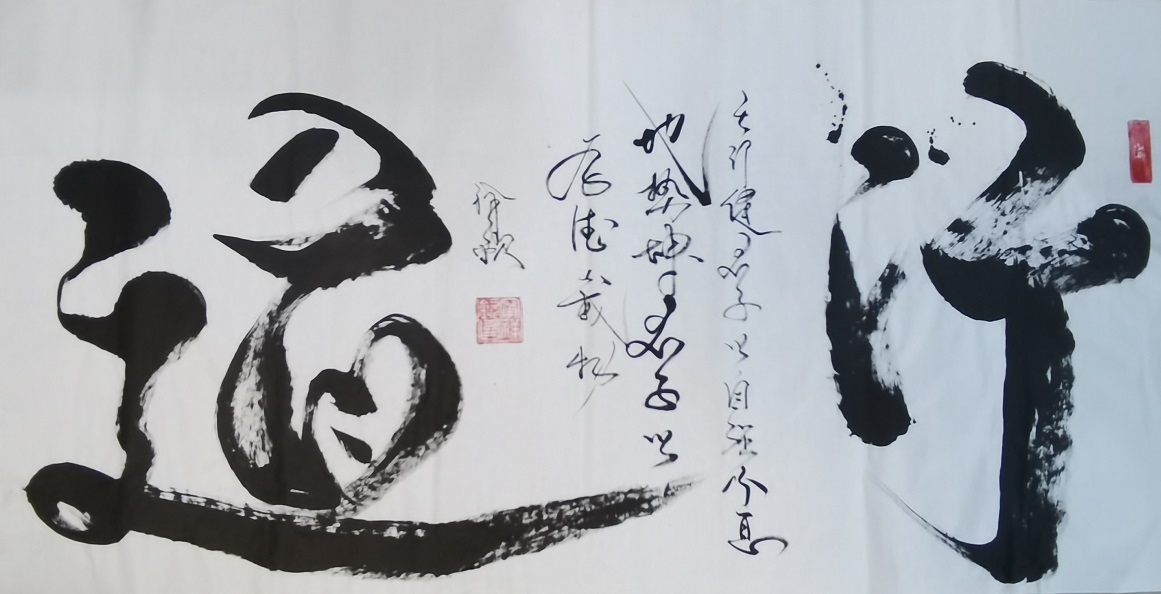 行
天行健君子以自强不息
地势坤君子以
厚德载物
道